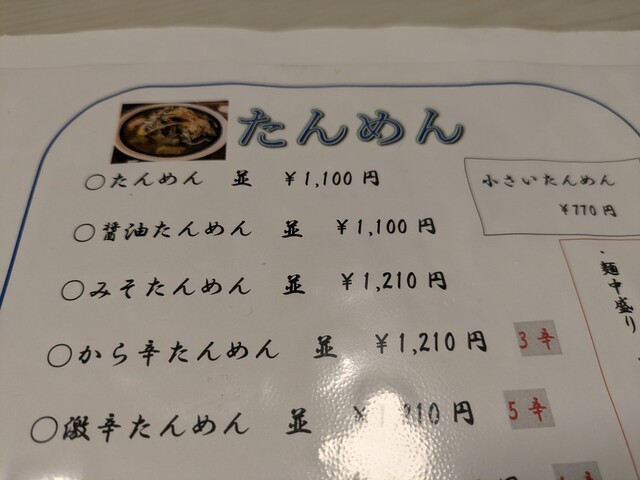 たんめん
○たんめん 並 ¥1,100円
小さいたんめん
¥770円
○醤油たんめん 並 ¥1,100円
○みそたんめん 並 ¥1,210円
○から辛たんめん 並 ¥1,210円 3辛
○激辛たんめん 並 210円 5辛
・麺中盛り